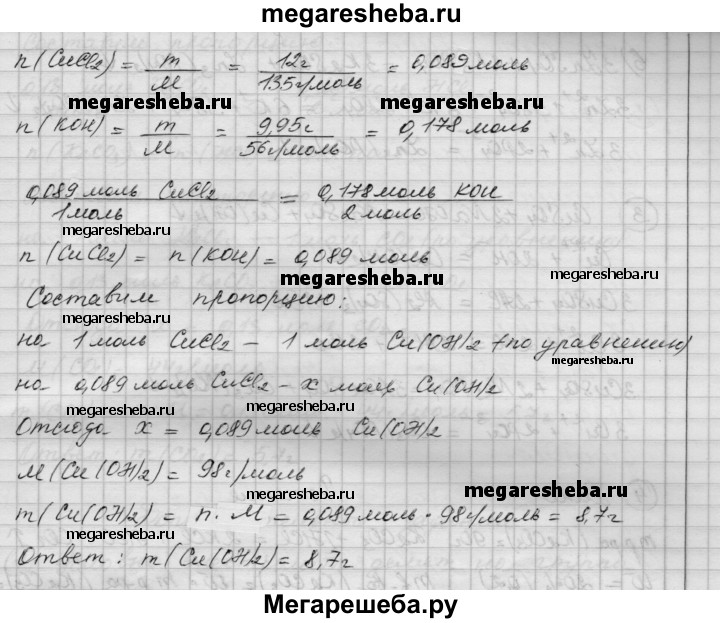 megaresheba.ru
n(CuCl2) = m/M = 12г/135г/моль = 0,089 моль
megaresheba.ru megaresheba.ru
n(KOH) = m/M = 9,95г/56г/моль = 0,178 моль
0,089 моль CuCl2/1 моль = 0,178 моль KOH/2 моль
megaresheba.ru
n(CuCl2) = n(KOH) = 0,089 моль
megaresheba.ru megaresheba.ru
Составим пропорцию:
megaresheba.ru
на 1 моль CuCl2 – 1 моль Cu(OH)2 (по уравнению)
megaresheba.ru
на 0,089 моль CuCl2 – x моль Cu(OH)2
megaresheba.ru megaresheba.ru
Отсюда x = 0,089 моль Cu(OH)2
M(Cu(OH)2) = 98г/моль
megaresheba.ru
m(Cu(OH)2) = n · M = 0,089 моль · 98г/моль = 8,7г
megaresheba.ru
Ответ: m(Cu(OH)2) = 8,7г
Мегарешеба.ру